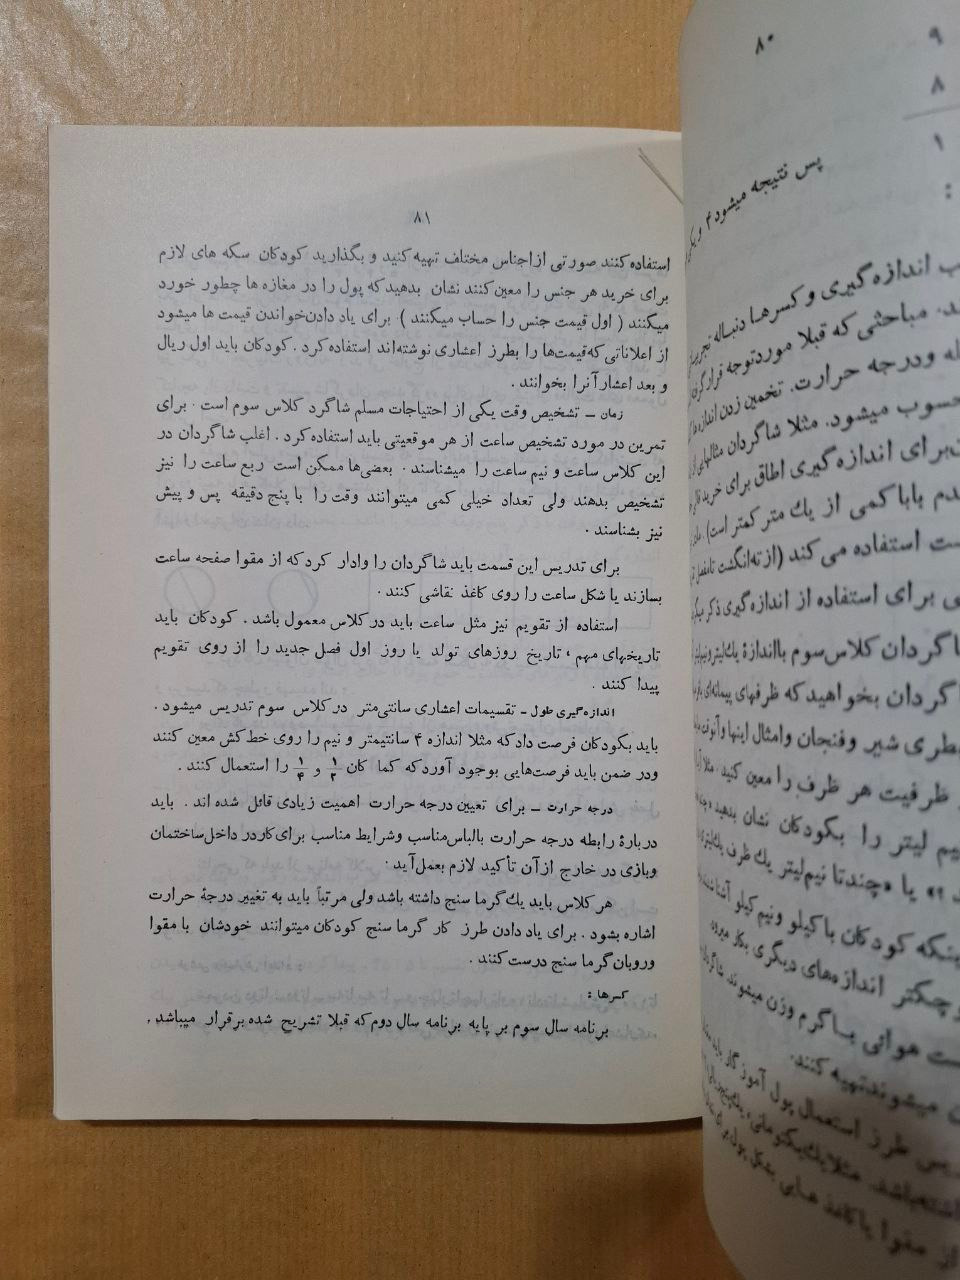 ۸۰
۹
۸
۱
پس نتیجه میشود ۴ و یکی
اندازه گیری و کسرها دنباله
مباحثی که قبلا مورد توجه قرار
له و درجه حرارت. تخمین زدن اندازه ها
حسوب میشود. مثلا شاگردان مثالهایی از
برای اندازه گیری اطاق برای خرید
دم بابا کمی از یك متر کمتر است).
ست استفاده می کند (از ته انگشت تا مفصل
ی برای استفاده از اندازه گیری ذکر
شاگردان کلاس سوم با اندازهٔ یك لیتر و نیم لیتر
شاگردان بخواهید که ظرفهای پیمانه‌ای
بطری شیر و فنجان و امثال اینها و آنوقت
ظرفیت هر ظرف را معین کنید. مثلا
نیم لیتر را بکودکان نشان بدهید
؟» یا «چند تا نیم لیتر یك ظرف یك لیتری
اینکه کودکان با کیلو و نیم کیلو آشنا
و چکتر اندازه‌های دیگری بکار میرود
ست هوائی با گرم وزن میشوند.
ن میشوند تهیه کنند.
یس طرز استعمال پول آموزگار باید
داشته باشد. مثلا یك یکتومانی،
از مقوا یا کاغذ هایی بشکل پول برای
۸۱
استفاده کنند صورتی از اجناس مختلف تهیه کنید و بگذارید کودکان سکه های لازم
برای خرید هر جنس را معین کنند نشان بدهید که پول را در مغازه ها چطور خورد
میکنند ( اول قیمت جنس را حساب میکنند ) . برای یاد دادن خواندن قیمت ها میشود
از اعلاناتی که قیمت‌ها را بطرز اعشاری نوشته‌اند استفاده کرد . کودکان باید اول ریال
و بعد اعشار آنرا بخوانند .
زمان ــ تشخیص وقت یکی از احتیاجات مسلم شاگرد کلاس سوم است . برای
تمرین در مورد تشخیص ساعت از هر موقعیتی باید استفاده کرد . اغلب شاگردان در
این کلاس ساعت و نیم ساعت را میشناسند . بعضی‌ها ممکن است ربع ساعت را نیز
تشخیص بدهند ولی تعداد خیلی کمی میتوانند وقت را با پنج دقیقه پس و پیش
نیز بشناسند .
برای تدریس این قسمت باید شاگردان را وادار کرد که از مقوا صفحه ساعت
بسازند یا شکل ساعت را روی کاغذ نقاشی کنند .
استفاده از تقویم نیز مثل ساعت باید در کلاس معمول باشد . کودکان باید
تاریخهای مهم ، تاریخ روزهای تولد یا روز اول فصل جدید را از روی تقویم
پیدا کنند .
اندازه گیری طول ــ تقسیمات اعشاری سانتی‌متر در کلاس سوم تدریس میشود .
باید بکودکان فرصت داد که مثلا اندازه ۴ سانتیمتر و نیم را روی خط کش معین کنند
و در ضمن باید فرصت‌هایی بوجود آورد که کما کان ۱/۲ و ۱/۴ را استعمال کنند .
درجه حرارت ــ برای تعیین درجه حرارت اهمیت زیادی قائل شده اند . باید
دربارهٔ رابطه درجه حرارت با لباس مناسب و شرایط مناسب برای کار در داخل ساختمان
و بازی در خارج از آن تأکید لازم بعمل آید .
هر کلاس باید یك گرما سنج داشته باشد ولی مرتباً باید به تغییر درجهٔ حرارت
اشاره بشود . برای یاد دادن طرز کار گرما سنج کودکان میتوانند خودشان با مقوا
و روبان گرما سنج درست کنند .
کسرها :
برنامه سال سوم بر پایه برنامه سال دوم که قبلا تشریح شده برقرار میباشد .